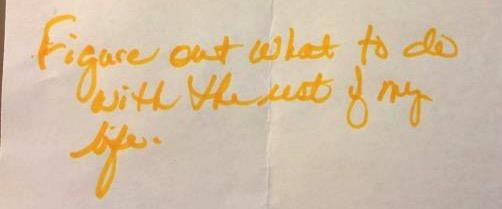 Figure out what to do
with the rest of my
life.